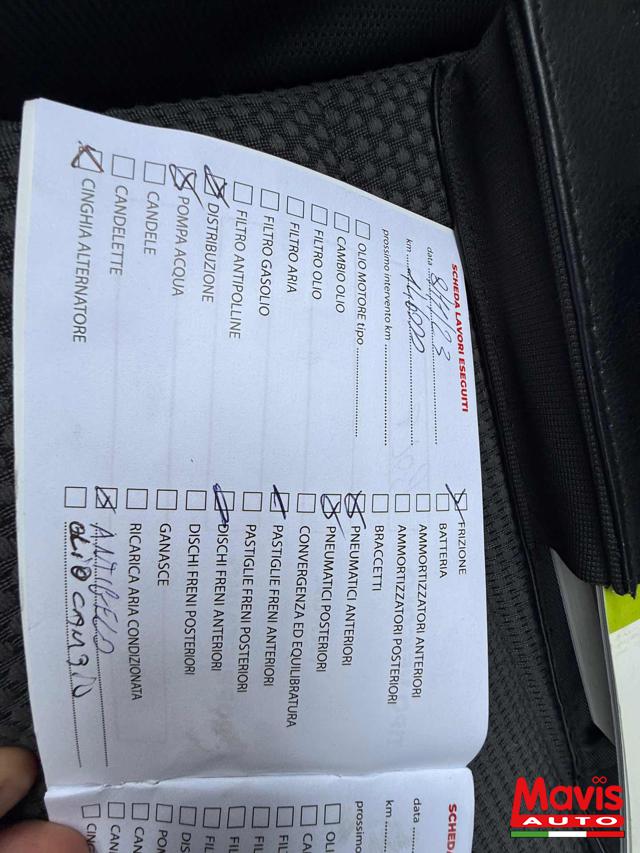 SCHEDA LAVORI ESEGUITI
data
km 146000
prossimo intervento km
OLIO MOTORE tipo
CAMBIO OLIO
FILTRO OLIO
FILTRO ARIA
FILTRO GASOLIO
FILTRO ANTIPOLLINE
DISTRIBUZIONE
POMPA ACQUA
CANDELE
CANDELETTE
CINGHIA ALTERNATORE
FRIZIONE
BATTERIA
AMMORTIZZATORI ANTERIORI
AMMORTIZZATORI POSTERIORI
BRACCETTI
PNEUMATICI ANTERIORI
PNEUMATICI POSTERIORI
CONVERGENZA ED EQUILIBRATURA
PASTIGLIE FRENI ANTERIORI
PASTIGLIE FRENI POSTERIORI
DISCHI FRENI ANTERIORI
DISCHI FRENI POSTERIORI
GANASCE
RICARICA ARIA CONDIZIONATA
ANTIGELO
OLIO CAMBIO
SCHEDA
data
km
prossimo
OLI
CA
FIL
FIL
FIL
FIL
DIS
POM
CAN
CAN
CIN
Mavis
AUTO